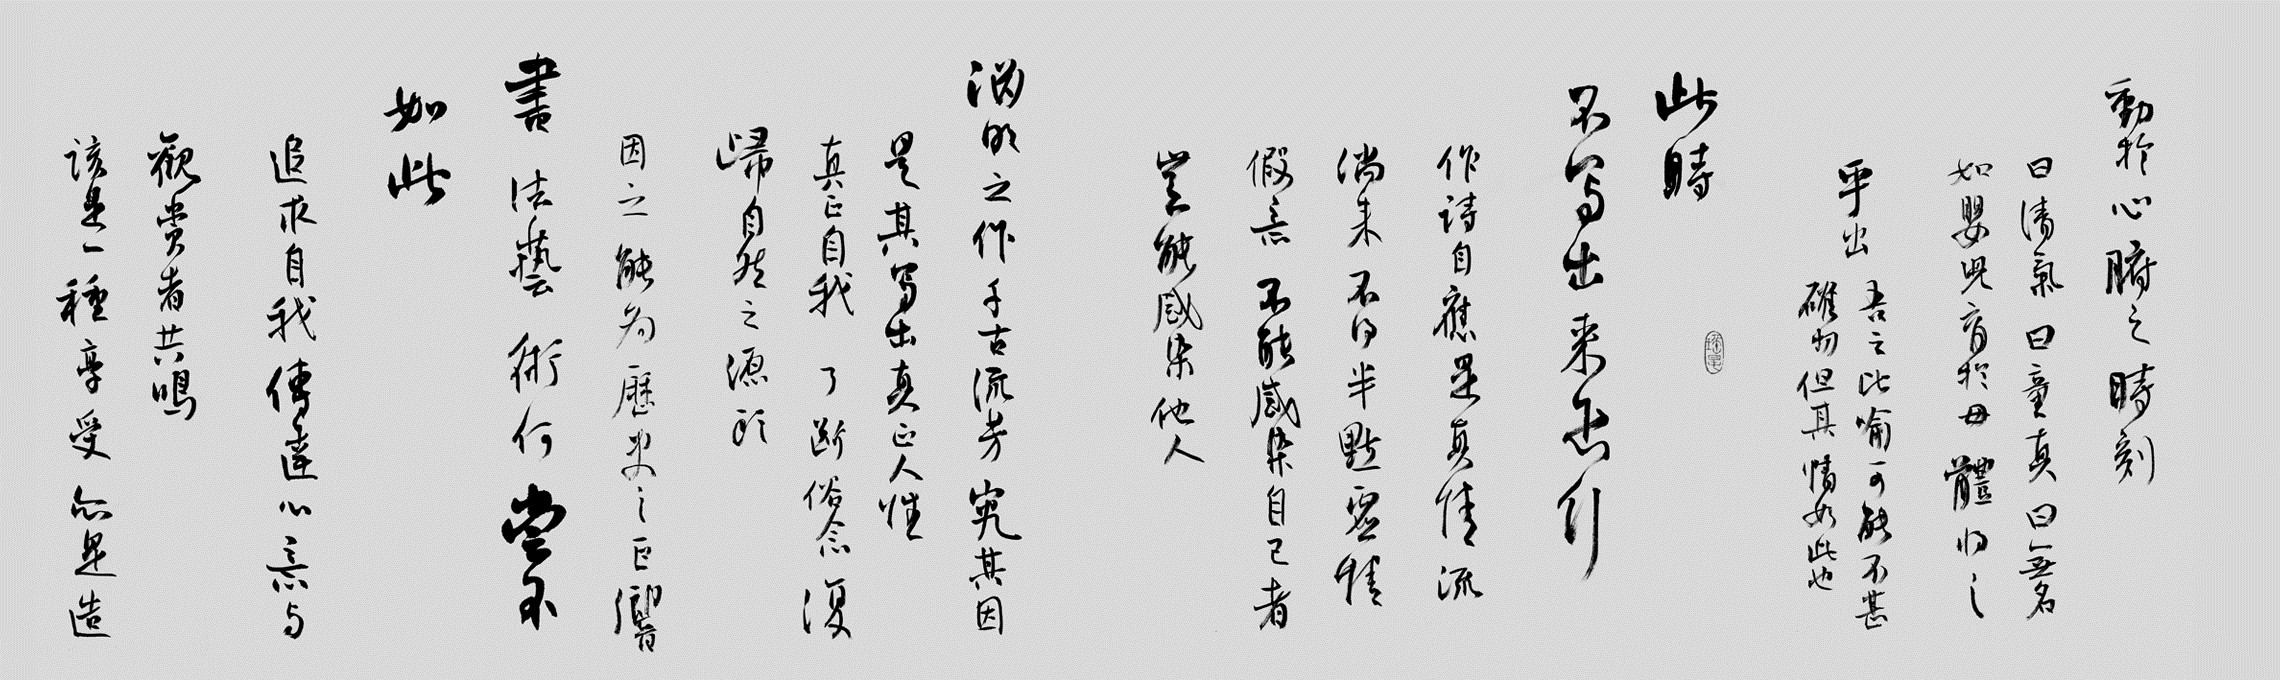 動於心腑之時刻
曰清氣曰童真曰無名
如嬰兒育於母體內之
乎出
吾之比喻可能不甚
確切但其情如此也
此時
不寫出來不行
作詩自應是真情流
淌來不得半點虛情
假意不能感染自己者
豈能感染他人
淵明之作千古流芳究其因
是其寫出真正人性
真正自我了斷俗念復
歸自然之源頭
因之能為歷史之巨響
書法藝術何嘗不
如此
追求自我傳達心意与
觀賞者共鳴
該是一種享受亦是造